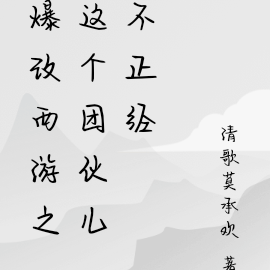 爆改西游之
这个团伙儿
不正经
清歌莫承欢 著